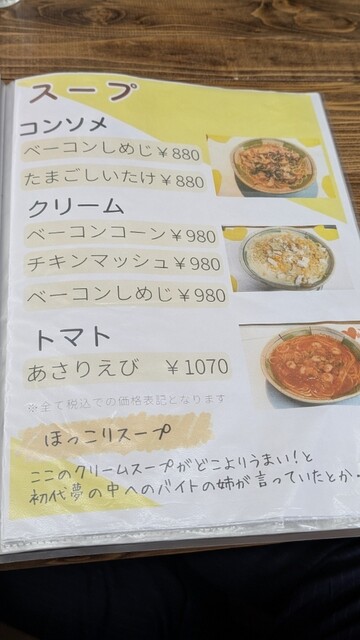 スープ
コンソメ
ベーコンしめじ ¥880
たまごしいたけ ¥880
クリーム
ベーコンコーン ¥980
チキンマッシュ ¥980
ベーコンしめじ ¥980
トマト
あさりえび ¥1070
※全て税込での価格表記となります
ほっこりスープ
ここのクリームスープがどこよりうまい!と
初代夢の中へのバイトの姉が言っていたとか・